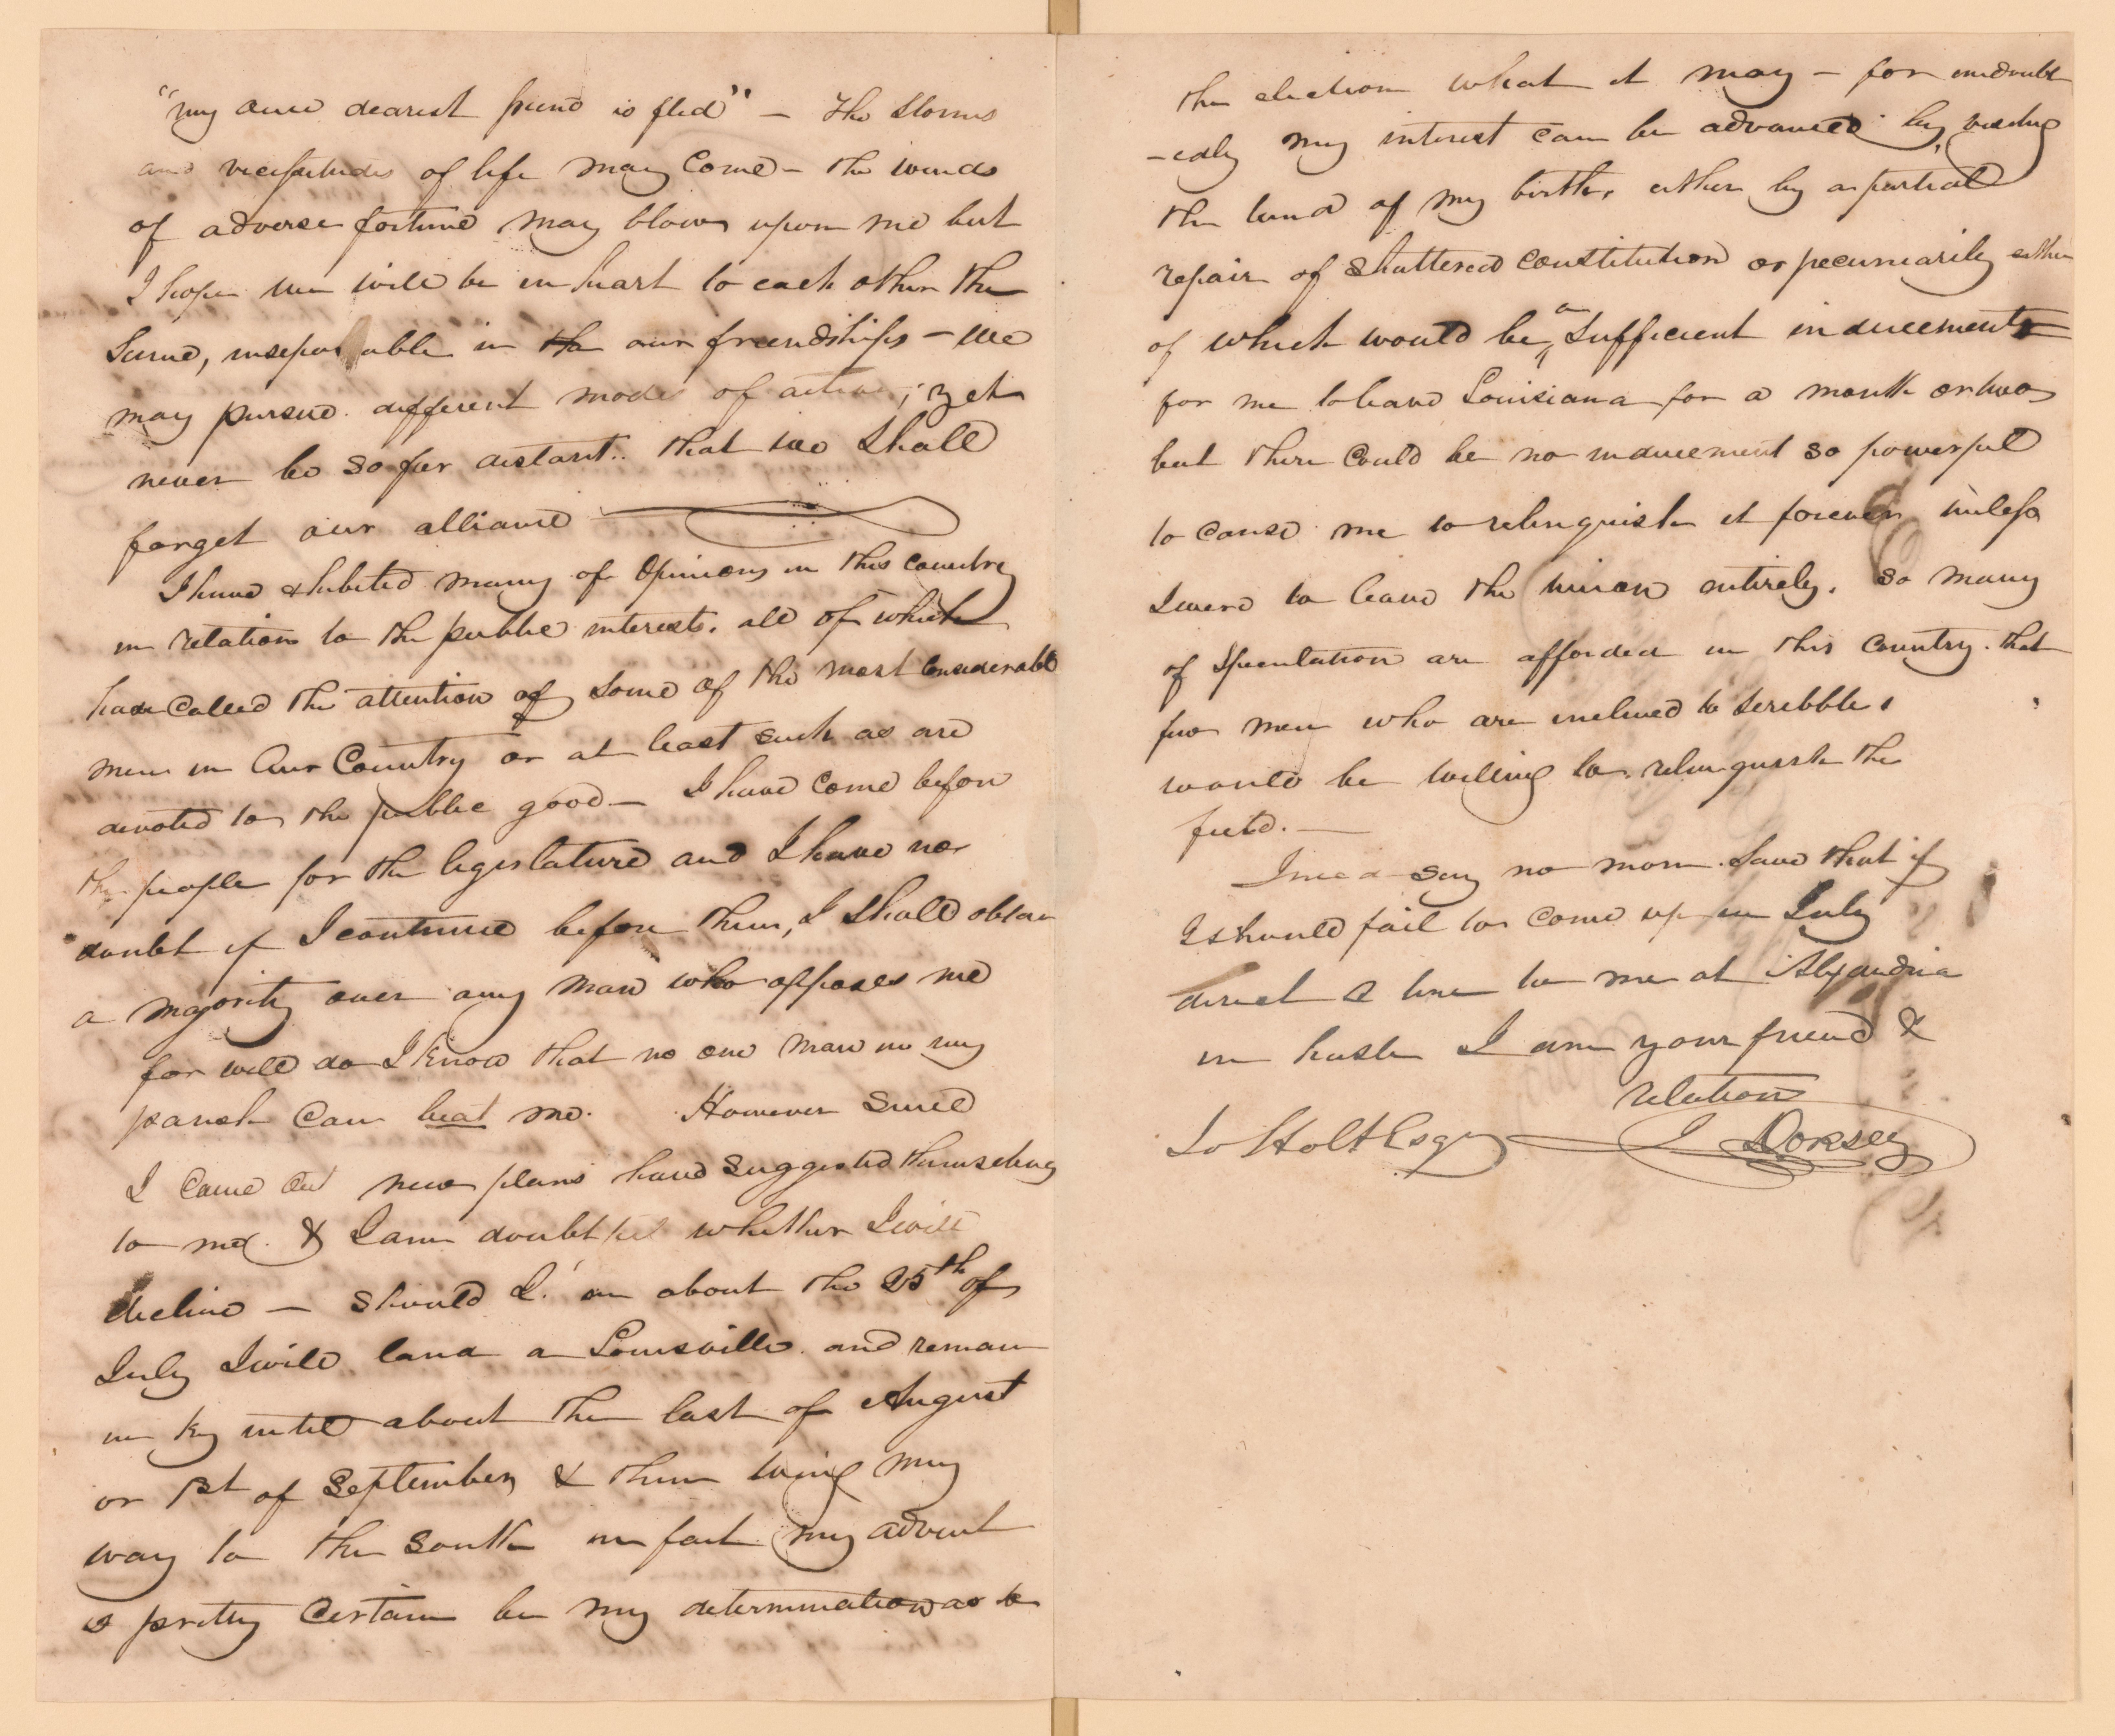 "my own dearest friend is fled" — The Storms
and vicissitudes of life may Come — the winds
of adverse fortune may blow upon me but
I hope we will be in heart to each other the
Same, inseparable in the our friendships — we
may pursue different modes of action; yet
never be so far distant that we Shall
forget our alliance
I have exhibited many of Opinions in this country
in relation to the public interest, all of which
have Called the attention of some of the most Considerable
men in Our Country or at least such as are
devoted to the public good — I have Come before
the people for the legislature and I have no
doubt if I continue before them, I Shall obtain
a majority over any man who opposes me
for well do I know that no one man in my
parish Can beat me. However Since
I Came out new plans have suggested themselves
to me. & I am doubtful whether I will
decline — Should I. on about the 25th of
July I will land a Louisville. and remain
in Ky until about the last of August
or 1st of September, & then wing my
way to the South in fact my advent
is pretty Certain be my determination as to
the election what it may — for undoubt
-edly my interest can be advanced by visiting
the land of my birth, either by a partial
repair of Shattered constitution or pecuniarily either
of which would be a Sufficient inducement
for me to leave Louisiana for a month or two
but there Could be no inducement so powerful
to cause me to relinquish it forever unless
I were to leave the union entirely. So many
of Speculation are afforded in this Country. that
few men who are inclined to scribble,
would be willing to relinquish the
field. —
I need say no more. Save that if
I should fail to Come up in July
direct a line to me at Alexandria
in haste I am your friend &
relation
Jo Holt Esqr L Dorsey